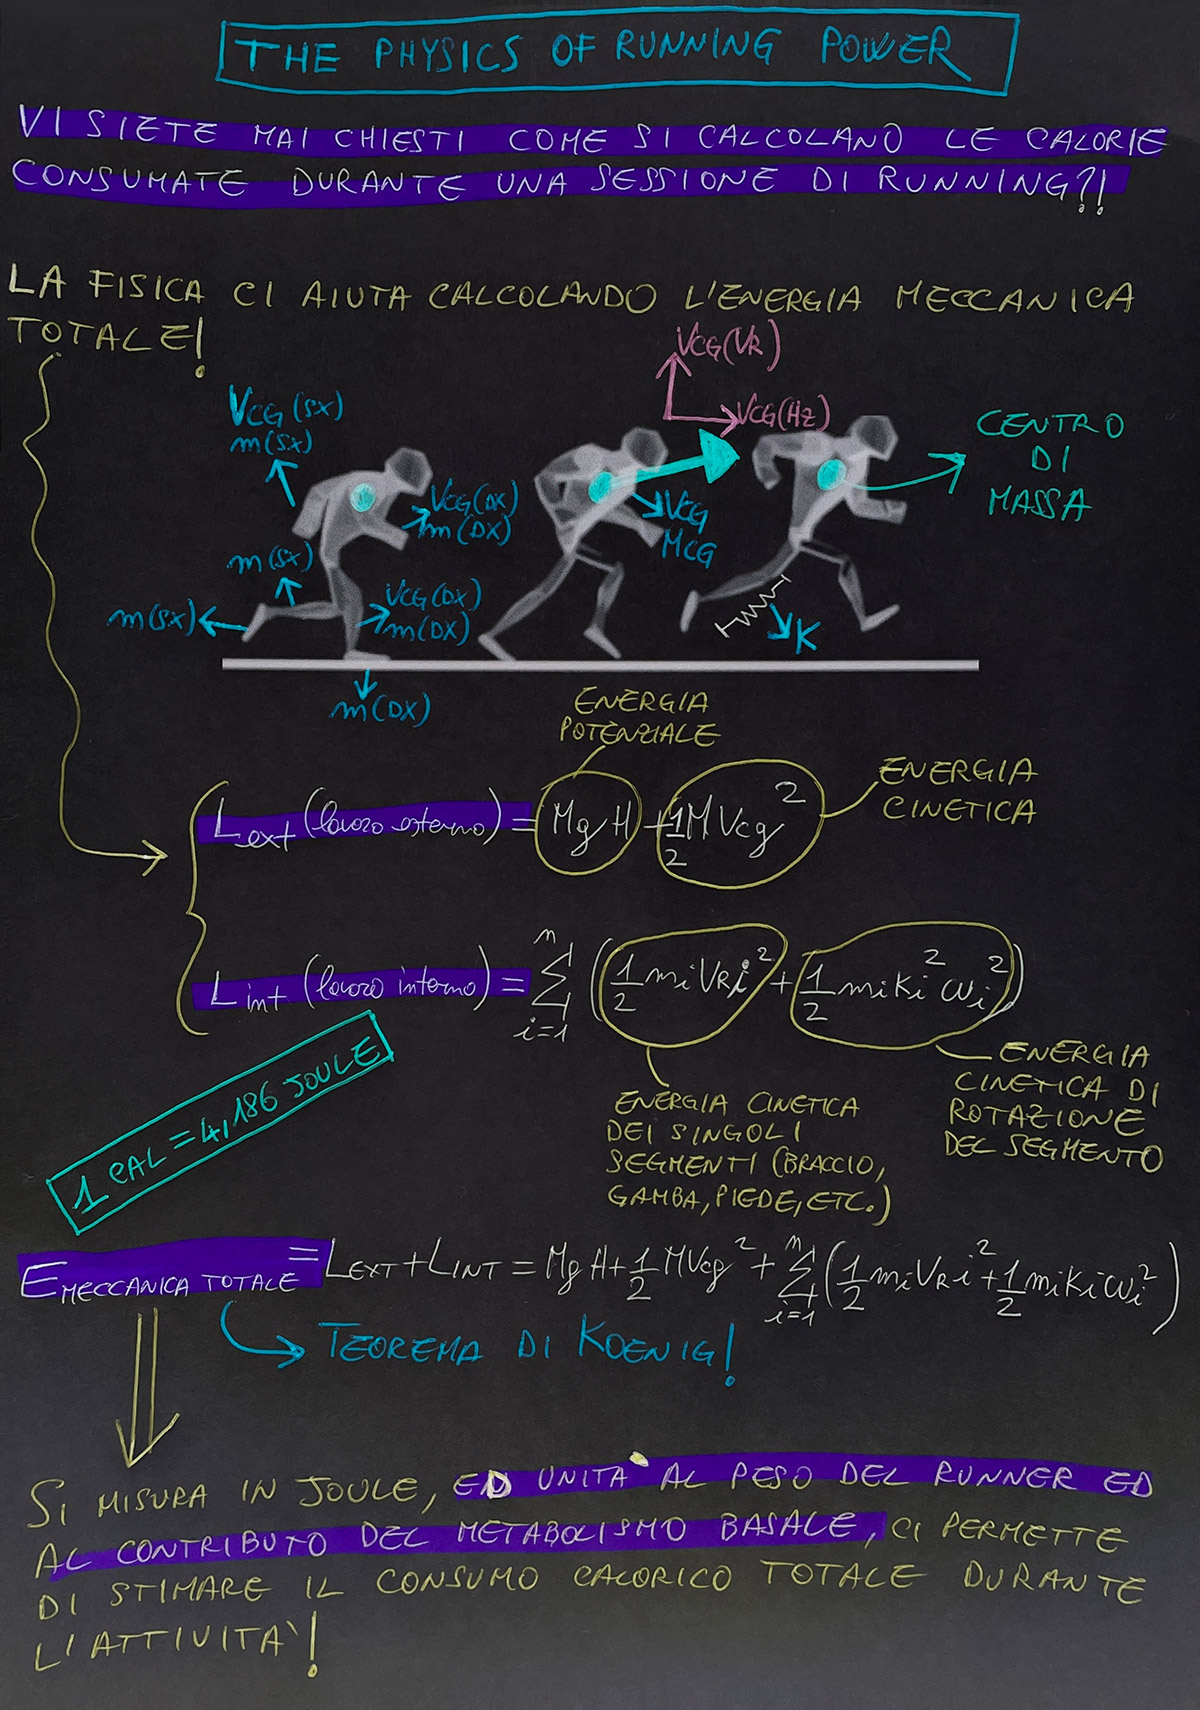 THE PHYSICS OF RUNNING POWER
VI SIETE MAI CHIESTI COME SI CALCOLANO LE CALORIE
CONSUMATE DURANTE UNA SESSIONE DI RUNNING?!
LA FISICA CI AIUTA CALCOLANDO L'ENERGIA MECCANICA
TOTALE!
VCG(VR)
VCG(HZ)
VCG(SX)
m(SX)
VCG(DX)
m(DX)
VCG
MCG
CENTRO
DI
MASSA
m(SX)
m(SX)
VCG(DX)
m(DX)
K
m(DX)
ENERGIA
POTENZIALE
ENERGIA
CINETICA
Lext (lavoro esterno) = MgH + 1/2 MVcg²
Lint (lavoro interno) = Σ i=1 n (1/2 miVRi² + 1/2 miKi²ωi²)
1 CAL = 4,186 JOULE
ENERGIA CINETICA
DEI SINGOLI
SEGMENTI (BRACCIO,
GAMBA, PIEDE, ETC.)
ENERGIA
CINETICA DI
ROTAZIONE
DEL SEGMENTO
EMECCANICA TOTALE = LEXT + LINT = MgH + 1/2 MVcg² + Σ i=1 n (1/2 miVRi² + 1/2 miKiωi²)
TEOREMA DI KOENIG!
SI MISURA IN JOULE, ED UNITA` AL PESO DEL RUNNER ED
AL CONTRIBUTO DEL METABOLISMO BASALE, CI PERMETTE
DI STIMARE IL CONSUMO CALORICO TOTALE DURANTE
L'ATTIVITA`!